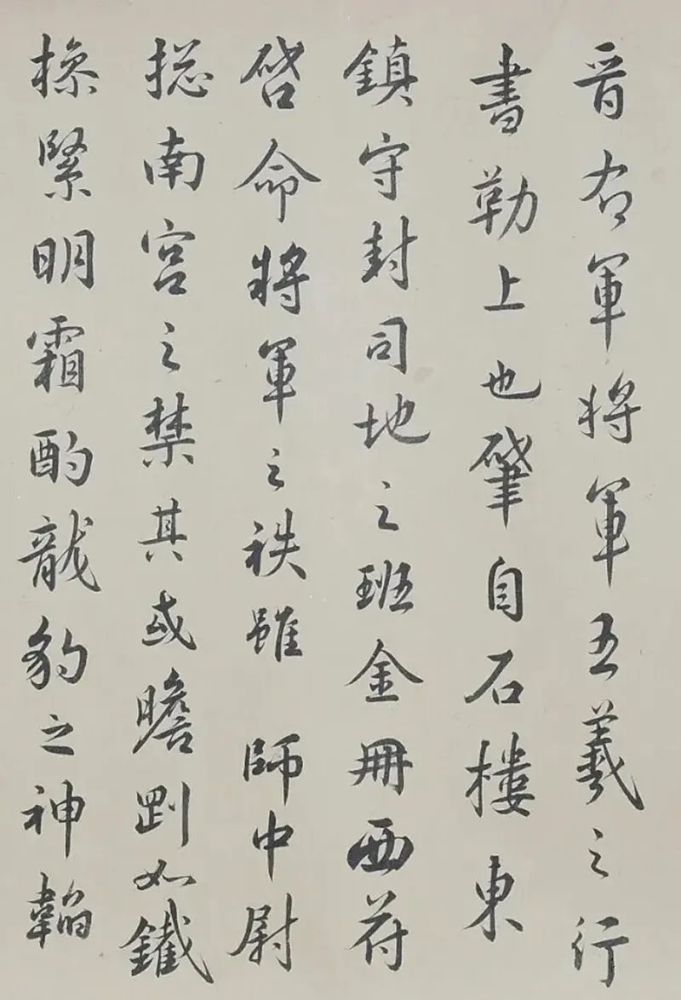 晋右軍將軍王羲之行
書勒上也肇自石樓東
鎮守封司地之班金冊西符
啓命將軍之秩雖 師中尉
揔南宮之禁其或瞻剛如鐵
操緊明霜酌龍豹之神韜